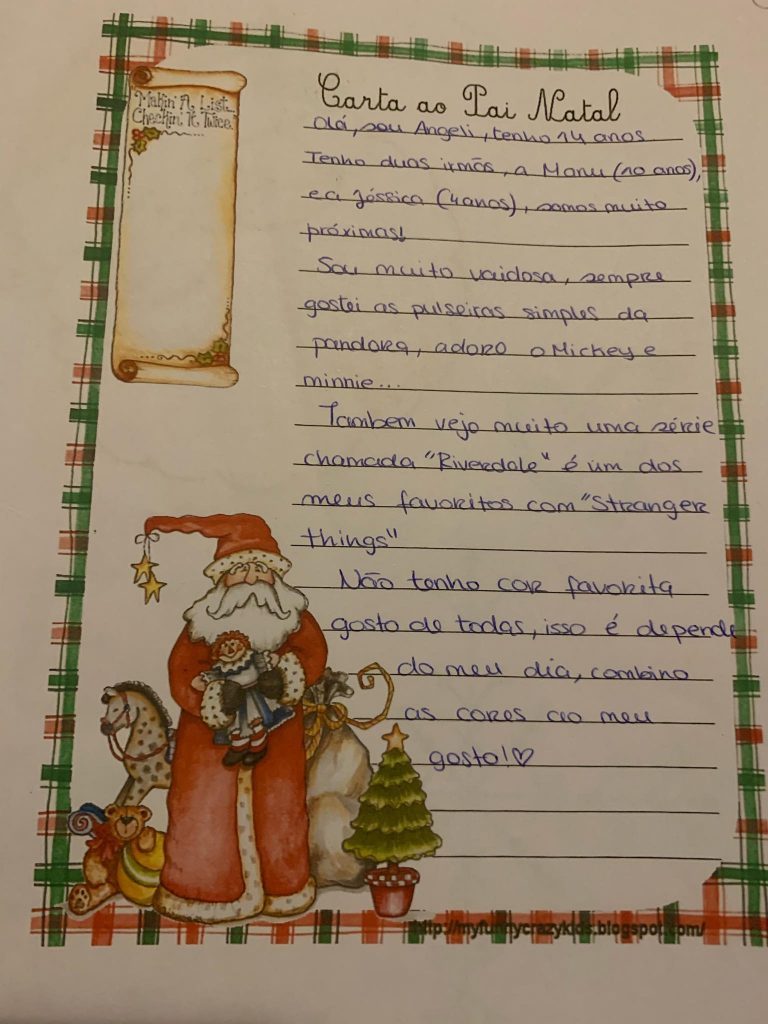 Makin' A List...
Checkin' It Twice
Carta ao Pai Natal
Olá, sou Angeli, tenho 14 anos
Tenho duas irmãs, a Manu (10 anos),
e a Jéssica (4 anos), somos muito
próximas!
Sou muito vaidosa, sempre
gostei as pulseiras simples da
pandora, adoro o Mickey e
minnie...
Tambem vejo muito uma série
chamada "Riverdale" é um dos
meus favoritos com "Stranger
things"
Não tenho cor favorita
gosto de todas, isso é depende
do meu dia, combino
as cores ao meu
gosto!♡
http://myfunnycrazykids.blogspot.com/